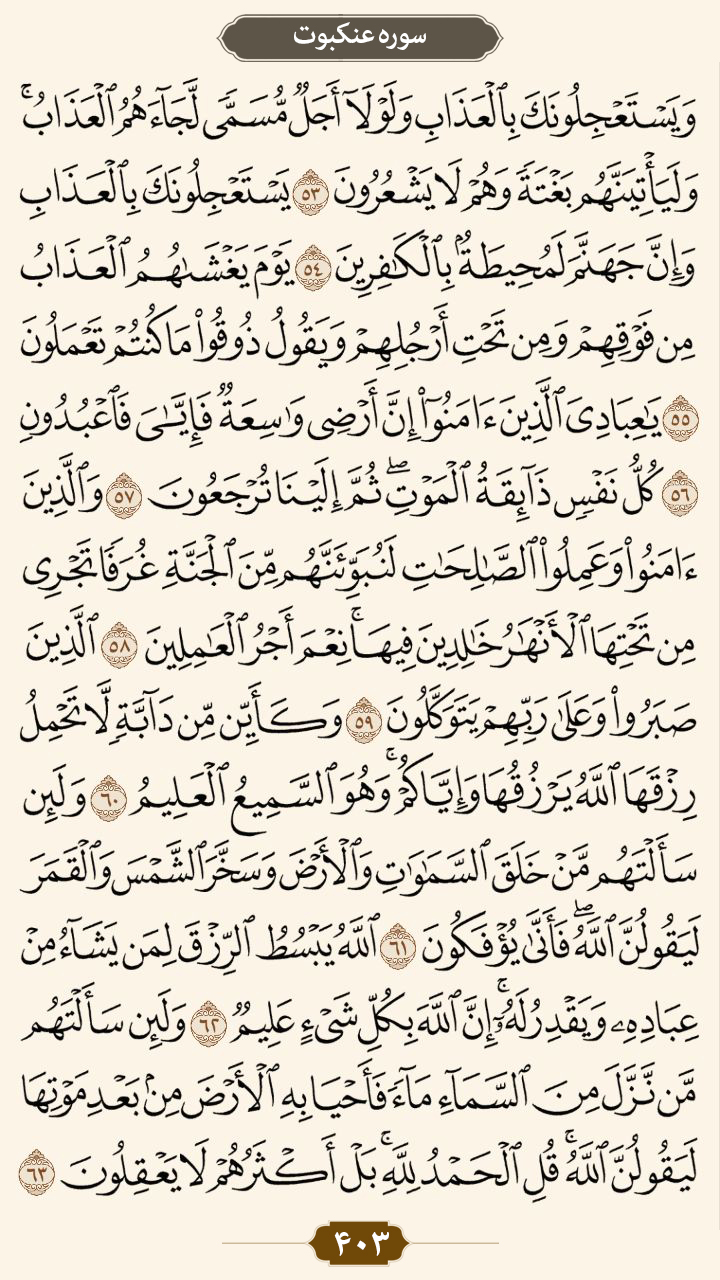 سوره عنکبوت
وَيَسۡتَعۡجِلُونَكَ بِٱلۡعَذَابِ وَلَوۡلَآ أَجَلٞ مُّسَمّٗى لَّجَآءَهُمُ ٱلۡعَذَابُۚ
وَلَيَأۡتِيَنَّهُم بَغۡتَةٗ وَهُمۡ لَا يَشۡعُرُونَ ٥٣ يَسۡتَعۡجِلُونَكَ بِٱلۡعَذَابِ
وَإِنَّ جَهَنَّمَ لَمُحِيطَةُۢ بِٱلۡكَٰفِرِينَ ٥٤ يَوۡمَ يَغۡشَىٰهُمُ ٱلۡعَذَابُ
مِن فَوۡقِهِمۡ وَمِن تَحۡتِ أَرۡجُلِهِمۡ وَيَقُولُ ذُوقُواْ مَا كُنتُمۡ تَعۡمَلُونَ
٥٥ يَٰعِبَادِيَ ٱلَّذِينَ ءَامَنُوٓاْ إِنَّ أَرۡضِي وَٰسِعَةٞ فَإِيَّٰيَ فَٱعۡبُدُونِ
٥٦ كُلُّ نَفۡسٖ ذَآئِقَةُ ٱلۡمَوۡتِۖ ثُمَّ إِلَيۡنَا تُرۡجَعُونَ ٥٧ وَٱلَّذِينَ
ءَامَنُواْ وَعَمِلُواْ ٱلصَّٰلِحَٰتِ لَنُبَوِّئَنَّهُم مِّنَ ٱلۡجَنَّةِ غُرَفٗا تَجۡرِي
مِن تَحۡتِهَا ٱلۡأَنۡهَٰرُ خَٰلِدِينَ فِيهَاۚ نِعۡمَ أَجۡرُ ٱلۡعَٰمِلِينَ ٥٨ ٱلَّذِينَ
صَبَرُواْ وَعَلَىٰ رَبِّهِمۡ يَتَوَكَّلُونَ ٥٩ وَكَأَيِّن مِّن دَآبَّةٖ لَّا تَحۡمِلُ
رِزۡقَهَا ٱللَّهُ يَرۡزُقُهَا وَإِيَّاكُمۡۚ وَهُوَ ٱلسَّمِيعُ ٱلۡعَلِيمُ ٦٠ وَلَئِن
سَأَلۡتَهُم مَّنۡ خَلَقَ ٱلسَّمَٰوَٰتِ وَٱلۡأَرۡضَ وَسَخَّرَ ٱلشَّمۡسَ وَٱلۡقَمَرَ
لَيَقُولُنَّ ٱللَّهُۖ فَأَنَّىٰ يُؤۡفَكُونَ ٦١ ٱللَّهُ يَبۡسُطُ ٱلرِّزۡقَ لِمَن يَشَآءُ مِنۡ
عِبَادِهِۦ وَيَقۡدِرُ لَهُۥٓۚ إِنَّ ٱللَّهَ بِكُلِّ شَيۡءٍ عَلِيمٞ ٦٢ وَلَئِن سَأَلۡتَهُم
مَّن نَّزَّلَ مِنَ ٱلسَّمَآءِ مَآءٗ فَأَحۡيَا بِهِ ٱلۡأَرۡضَ مِنۢ بَعۡدِ مَوۡتِهَا
لَيَقُولُنَّ ٱللَّهُۚ قُلِ ٱلۡحَمۡدُ لِلَّهِۚ بَلۡ أَكۡثَرُهُمۡ لَا يَعۡقِلُونَ ٦٣
۴۰۳